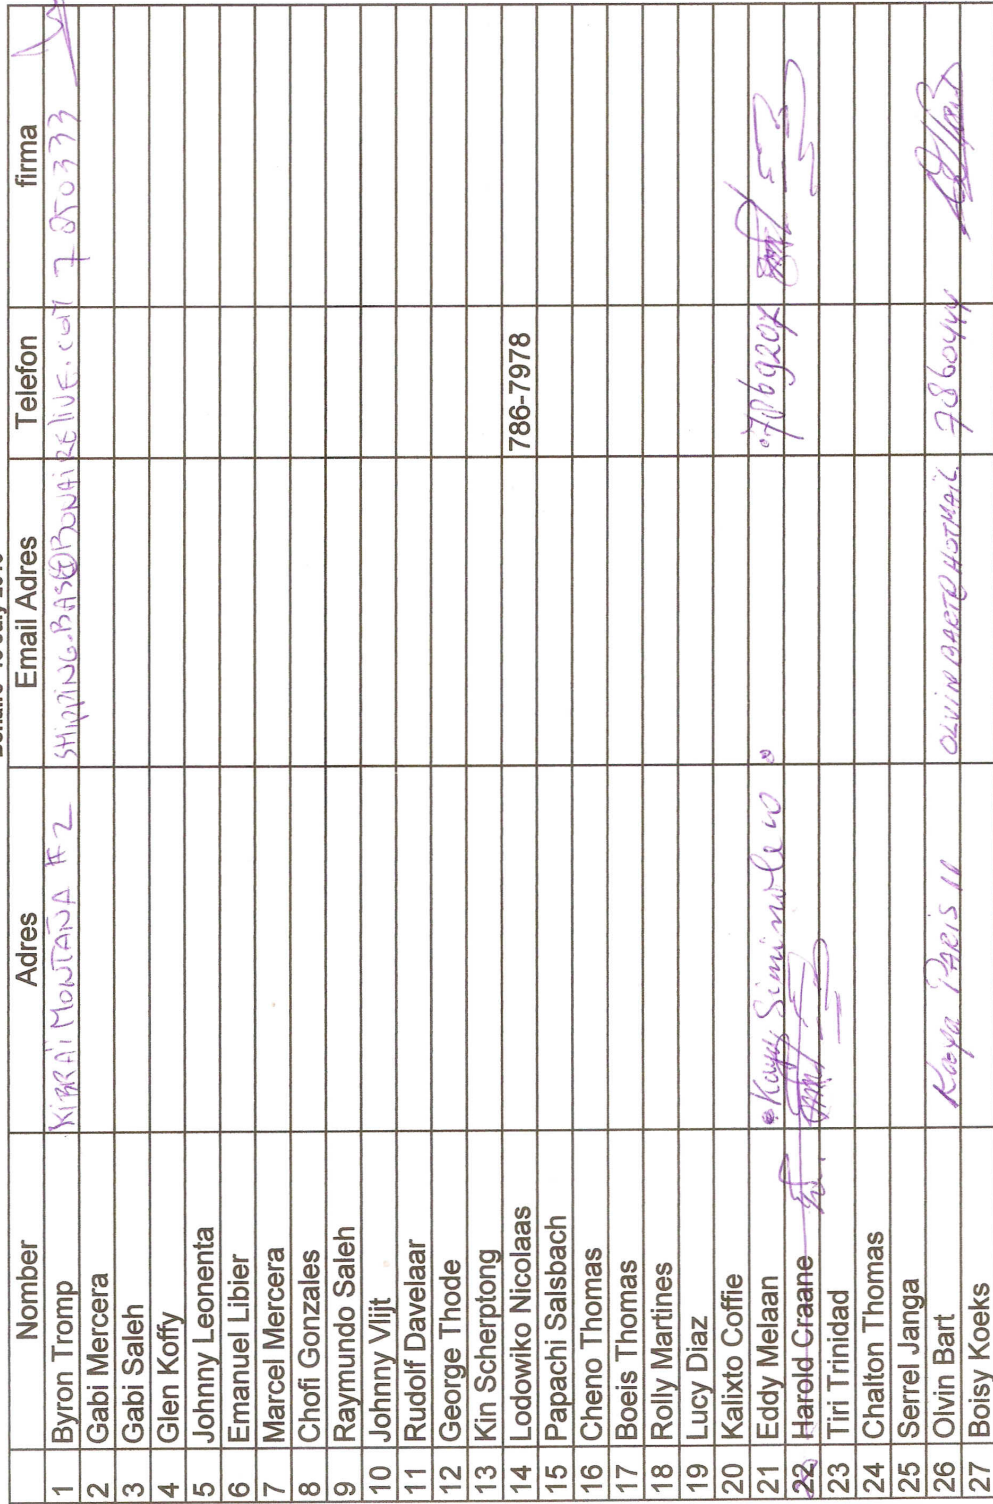 Nomber Adres Email Adres Telefon firma
1 Byron Tromp KIBRAI MONTAÑA #2 SHIPPING.BAS@BONAIRELIVE.COM 7850333
2 Gabi Mercera
3 Gabi Saleh
4 Glen Koffy
5 Johnny Leonenta
6 Emanuel Libier
7 Marcel Mercera
8 Chofi Gonzales
9 Raymundo Saleh
10 Johnny Vlijt
11 Rudolf Davelaar
12 George Thode
13 Kin Scherptong
14 Lodowiko Nicolaas 786-7978
15 Papachi Salsbach
16 Cheno Thomas
17 Boeis Thomas
18 Rolly Martines
19 Lucy Diaz
20 Kalixto Coffie
21 Eddy Melaan Kaya
22 Harold Craane
23 Tiri Trinidad
24 Chalton Thomas
25 Serrel Janga
26 Olvin Bart Kaya PARIS 11 OLVINBART@HOTMAIL. 7860444
27 Boisy Koeks